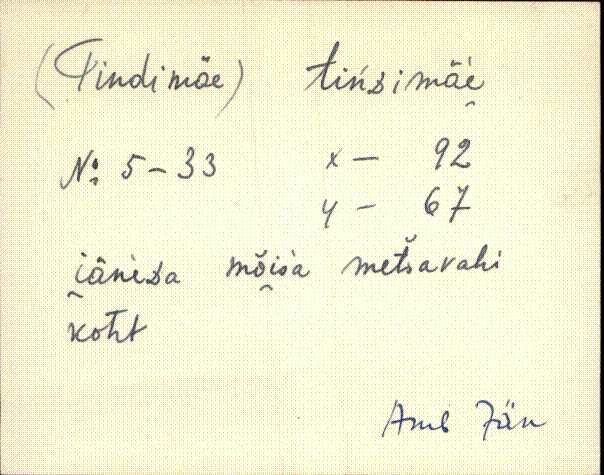 (Tindimäe) tińsimäe̯
No: 5-33 x - 92
y - 67
i̯änéda mõi̯śa metšavahi
koht
Amb Jän